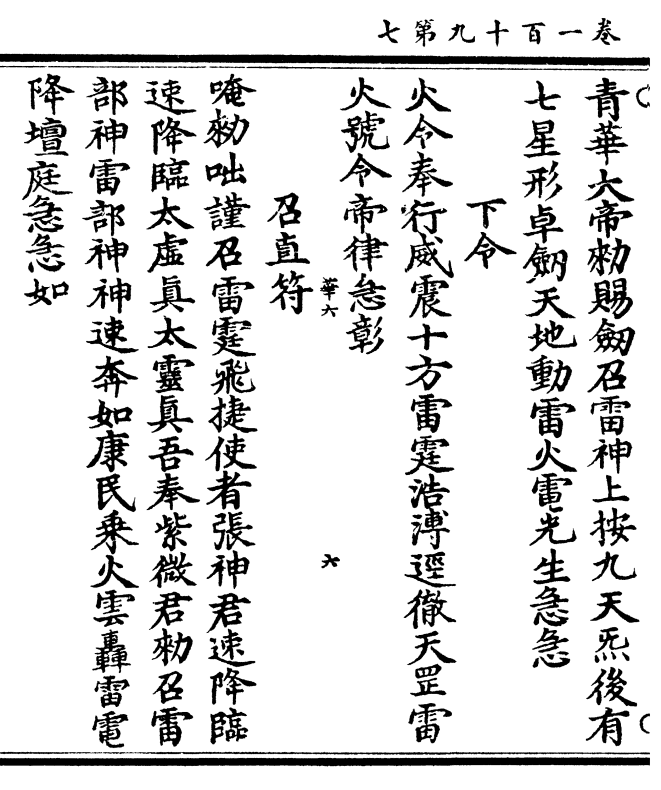 卷一百十九第七
青華大帝勑賜劒召雷神上按九天炁後有
七星形卓劒天地動雷火電光生急急
下令
火令奉行威震十方雷霆浩溥逕徹天罡雷
火號令帝律急彰
華六
六
召直符
唵勑咄謹召雷霆飛捷使者張神君速降臨
速降臨太虛眞太靈眞吾奉紫微君勑召雷
部神雷部神神速奔如康民乘火雲轟雷電
降壇庭急急如